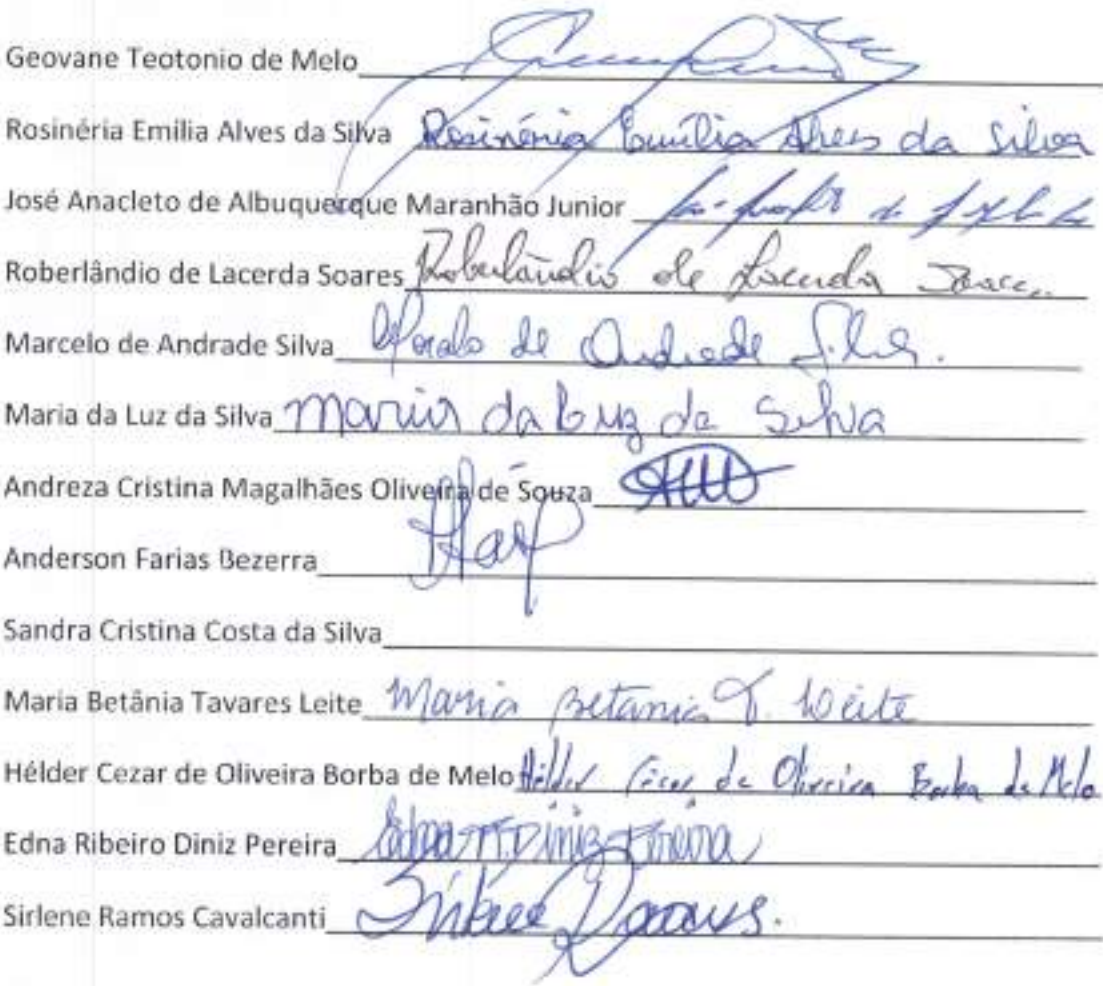 Geovane Teotonio de Melo
Rosinéria Emilia Alves da Silva Rosinéria Emília Alves da Silva
José Anacleto de Albuquerque Maranhão Junior
Roberlândio de Lacerda Soares Roberlândio de Lacerda Soares
Marcelo de Andrade Silva de Andrade Silva.
Maria da Luz da Silva Maria da Luz da Silva
Andreza Cristina Magalhães Oliveira de Souza
Anderson Farias Bezerra
Sandra Cristina Costa da Silva
Maria Betânia Tavares Leite Maria Betania T. Leite
Hélder Cezar de Oliveira Borba de Melo Hélder Cezar de Oliveira Borba de Melo
Edna Ribeiro Diniz Pereira Edna R Diniz Pereira
Sirlene Ramos Cavalcanti Sirlene Ramos.